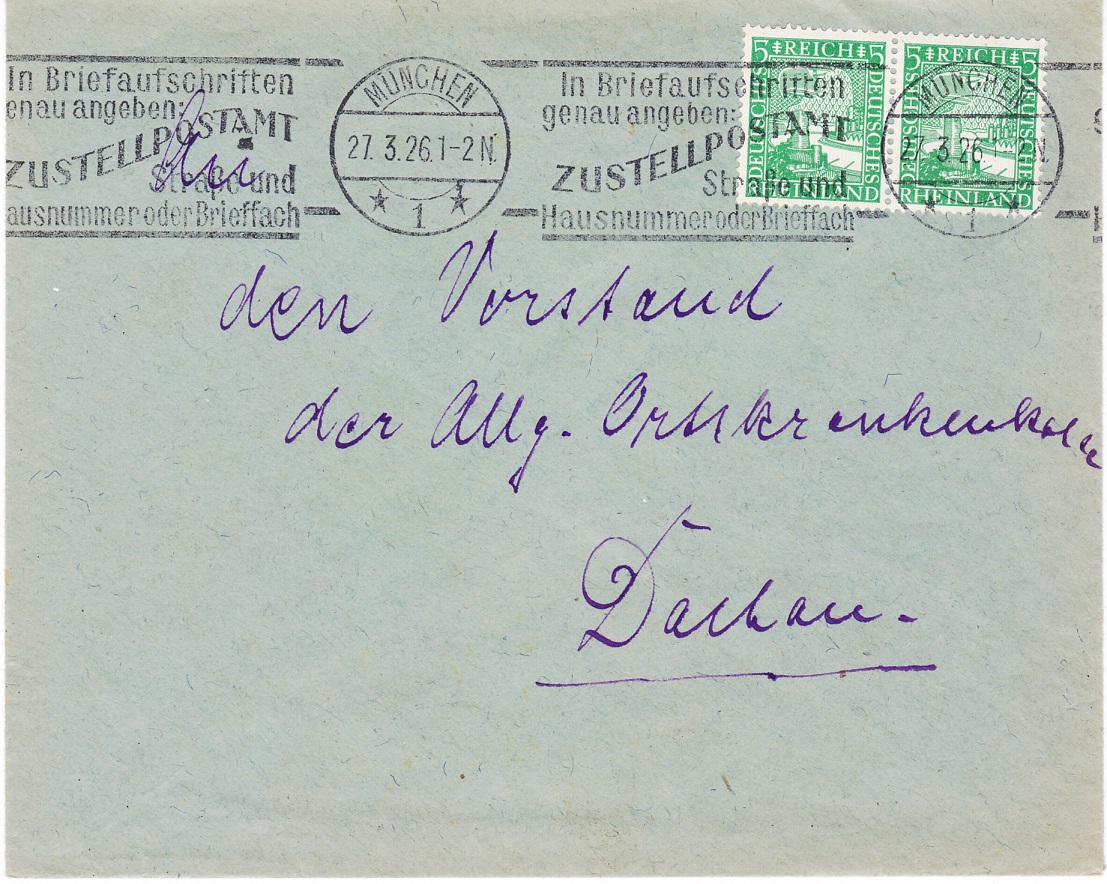 In Briefaufschriften
genau angeben:
ZUSTELLPOSTAMT
Straße und
ausnummer oder Brieffach
MÜNCHEN
27. 3. 26. 1-2 N.
1
In Briefaufschriften
genau angeben:
ZUSTELLPOSTAMT
Straße und
Hausnummer oder Brieffach
5 REICH 5
DEUTSCHES
DEUTSCHES
RHEINLAND
5 REICH 5
DEUTSCHES
DEUTSCHES
RHEINLAND
MÜNCHEN
27. 3. 26. N.
1
An
den Vorstand
der Allg. Ortskrankenkasse
Dachau.